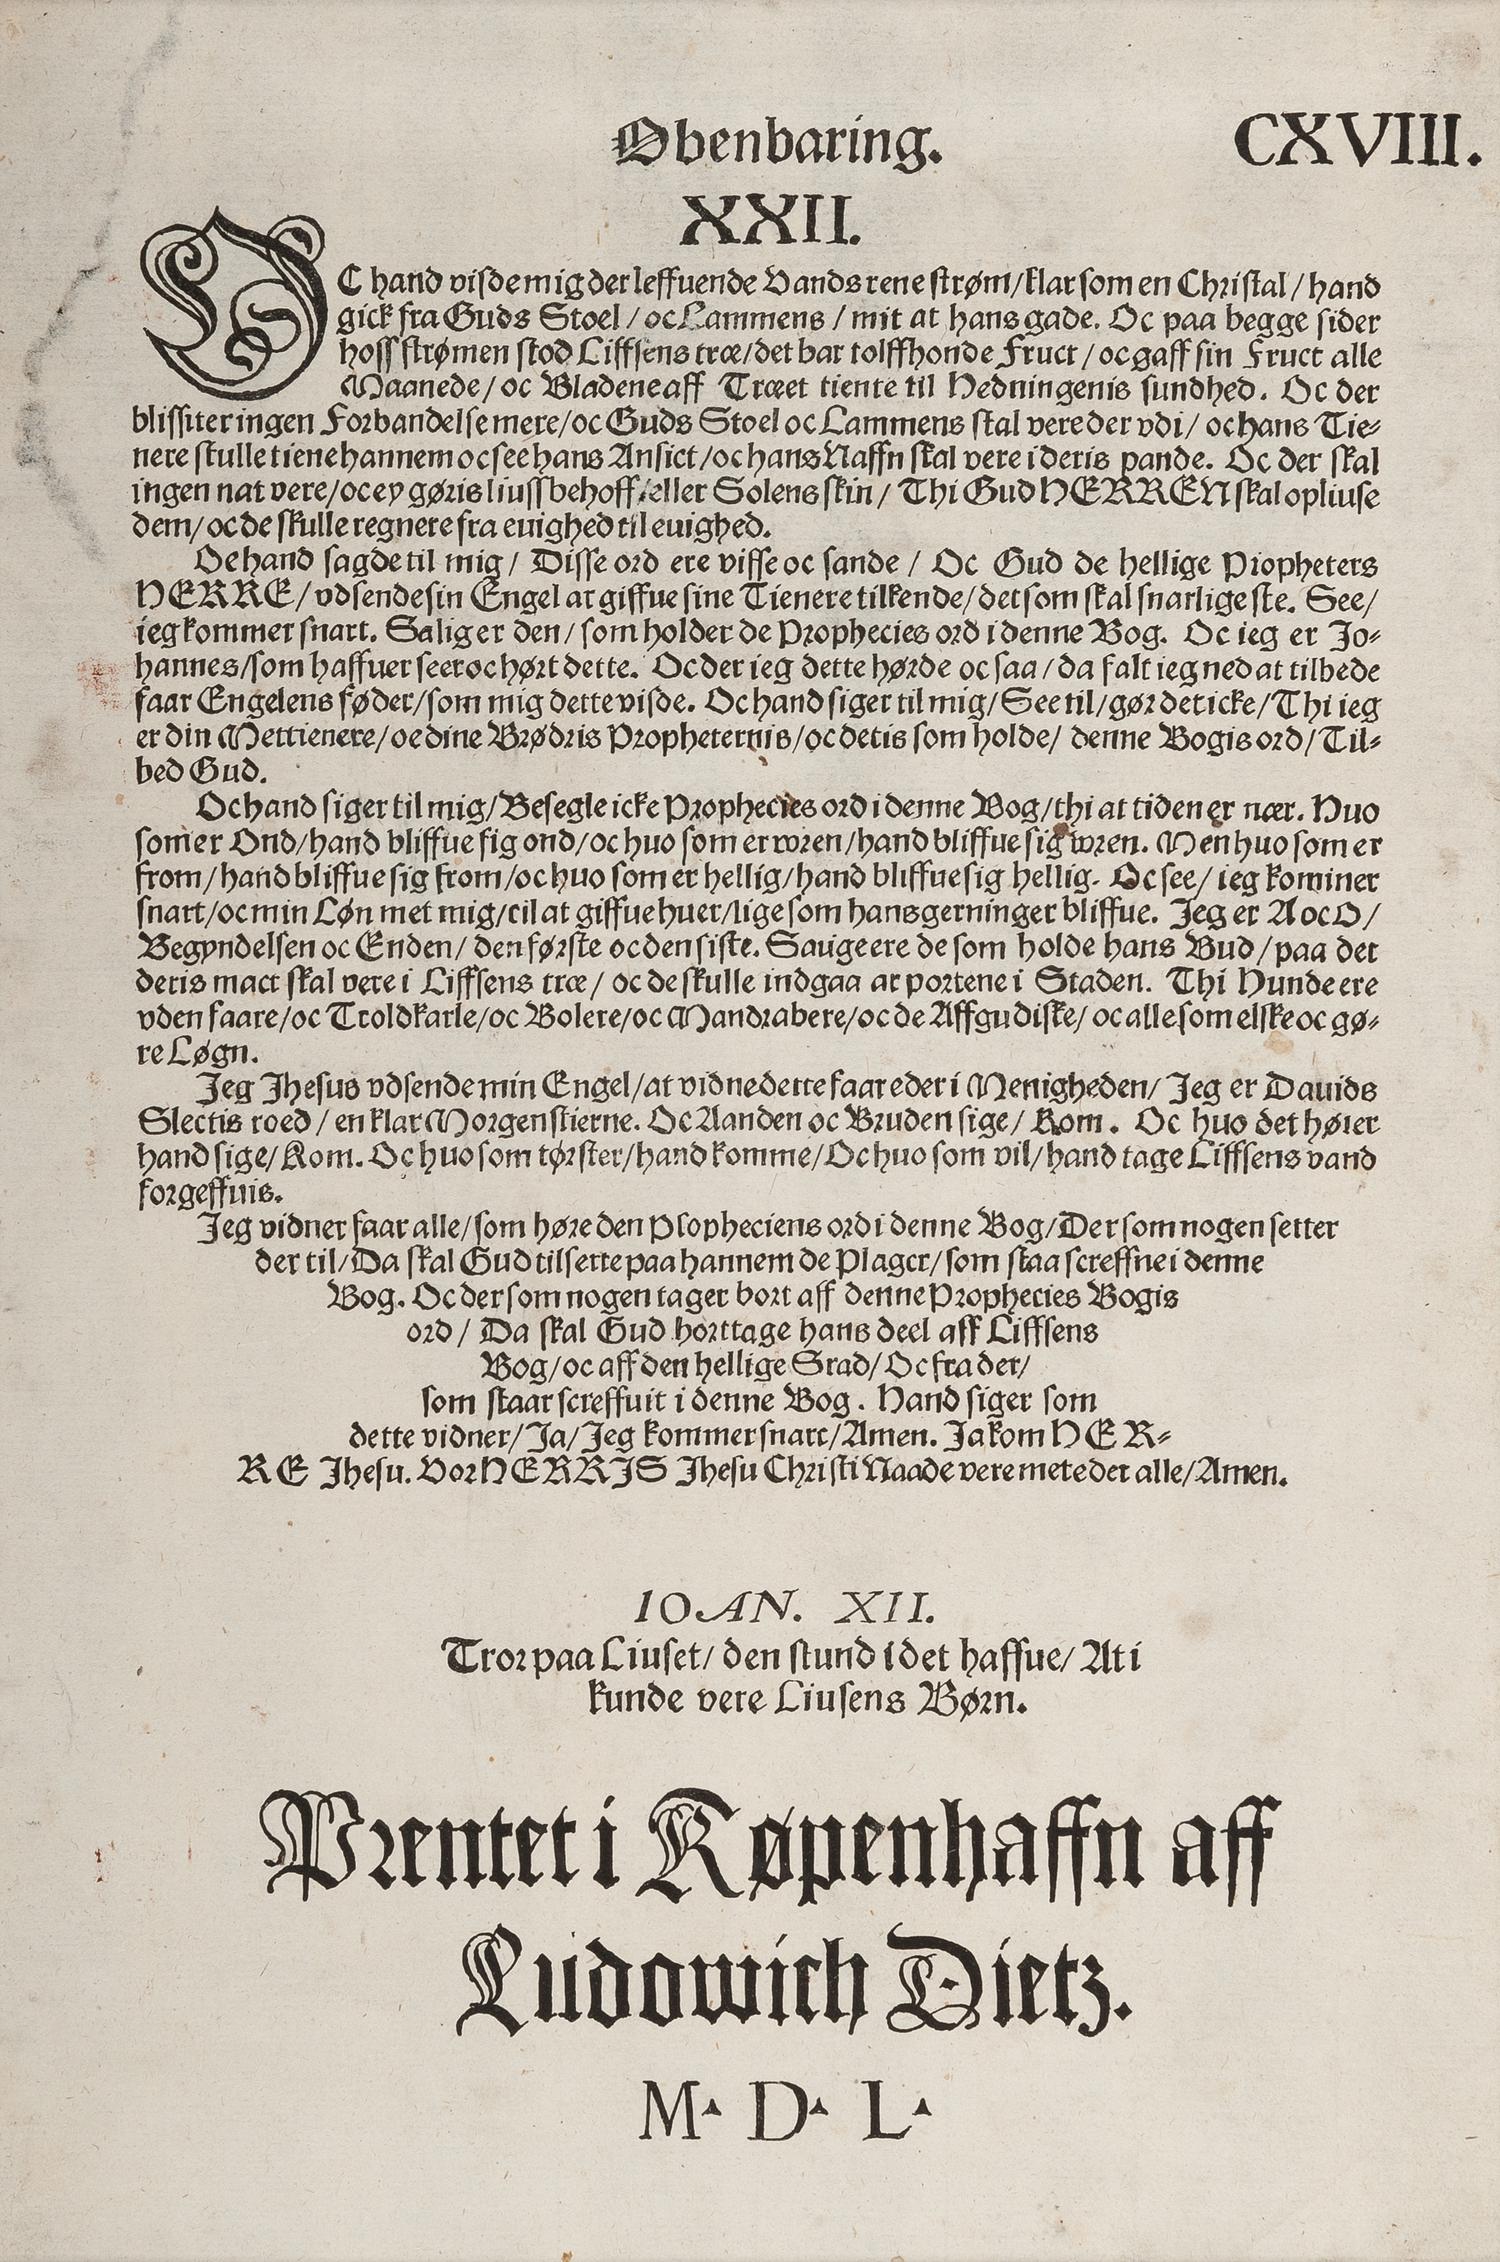 Obenbaring. CXVIII.
XXII.
OC hand visde mig der leffuende Vands rene strøm/klar som en Christal/hand
gick fra Guds Stoel/oc Lammens/mit at hans gade. Oc paa begge sider
hoss strømen stod Liffsens træ/det bar tolffhonde Fruct/oc gaff sin Fruct alle
Maanede/oc Bladene aff Træet tiente til Hedningenis sundhed. Oc der
blissiter ingen Forbandelse mere/oc Guds Stoel oc Lammens skal vere der vdi/oc hans Tie-
nere skulle tiene hannem oc see hans Ansict/oc hans Naffn skal vere i deris pande. Oc der skal
ingen nat vere/oc ey gøris liuss behoff/eller Solens skin/Thi Gud HERREN skal opliuse
dem/oc de skulle regnere fra euighed til euighed.
Oe hand sagde til mig/Disse ord ere visse oc sande/Oc Gud de hellige Propheters
HERRE/vdsende sin Engel at giffue sine Tienere tilkende/det som skal snarlige ske. See/
ieg kommer snart. Salig er den/som holder de Prophecies ord i denne Bog. Oc ieg er Jo-
hannes/som haffuer seet oc hørt dette. Oc der ieg dette hørde oc saa/da falt ieg ned at tilbede
faar Engelens føder/som mig dette visde. Oc hand siger til mig/See til/gør det icke/Thi ieg
er din Mettienere/oe dine Brødris Propheternis/oc detis som holde/denne Bogis ord/Til-
bed Gud.
Oc hand siger til mig/Besegle icke Prophecies ord i denne Bog/thi at tiden er nær. Huo
som er Ond/hand bliffue sig ond/oc huo som er wren/hand bliffue sig wren. Men huo som er
from/hand bliffue sig from/oc huo som er hellig/hand bliffue sig hellig. Oc see/ieg kommer
snart/oc min Løn met mig/til at giffue huer/lige som hans gerninger bliffue. Jeg er A oc O/
Begyndelsen oc Enden/den første oc den siste. Sauige ere de som holde hans Bud/paa det
deris mact skal vere i Liffsens træ/oc de skulle indgaa at portene i Staden. Thi Hunde ere
vden faare/oc Troldkarle/oc Bolere/oc Mandrabere/oc de Affgudiske/oc alle som elske oc gø-
re Løgn.
Jeg Jhesus vdsende min Engel/at vidne dette faar eder i Menigheden/Jeg er Dauids
Slectis roed/en klar Morgenstierne. Oc Aanden oc Bruden sige/Kom. Oc huo det hører
hand sige/Kom. Oc huo som tørster/hand komme/Oc huo som vil/hand tage Liffsens vand
forgeffuis.
Jeg vidner faar alle/som høre den Psopheciens ord i denne Bog/Der som nogen setter
der til/Da skal Gud tilsette paa hannem de Plager/som staa screffne i denne
Bog. Oc der som nogen tager bort aff denne Prophecies Bogis
ord/Da skal Gud borttage hans deel aff Liffsens
Bog/oc aff den hellige Stad/Oc fra det/
som staar screffuit i denne Bog. Hand siger som
dette vidner/Ja/Jeg kommer snart/Amen. Ja kom HER-
RE Jhesu. Vor HERRIS Jhesu Christi Naade vere met eder alle/Amen.
IOAN. XII.
Tror paa Liuset/den stund i det haffue/At i
kunde vere Liusens Børn.
Prentet i Køpenhaffn aff
Ludowich Dietz.
M. D. L.